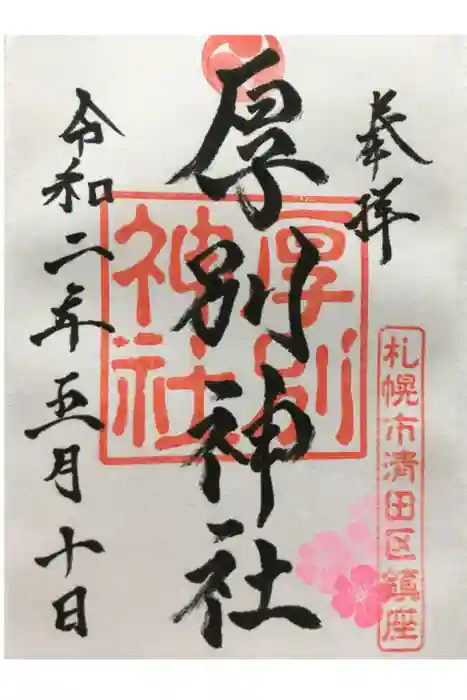 奉拝
札幌市清田区鎮座
厚別神社
厚別神社
令和二年五月十日